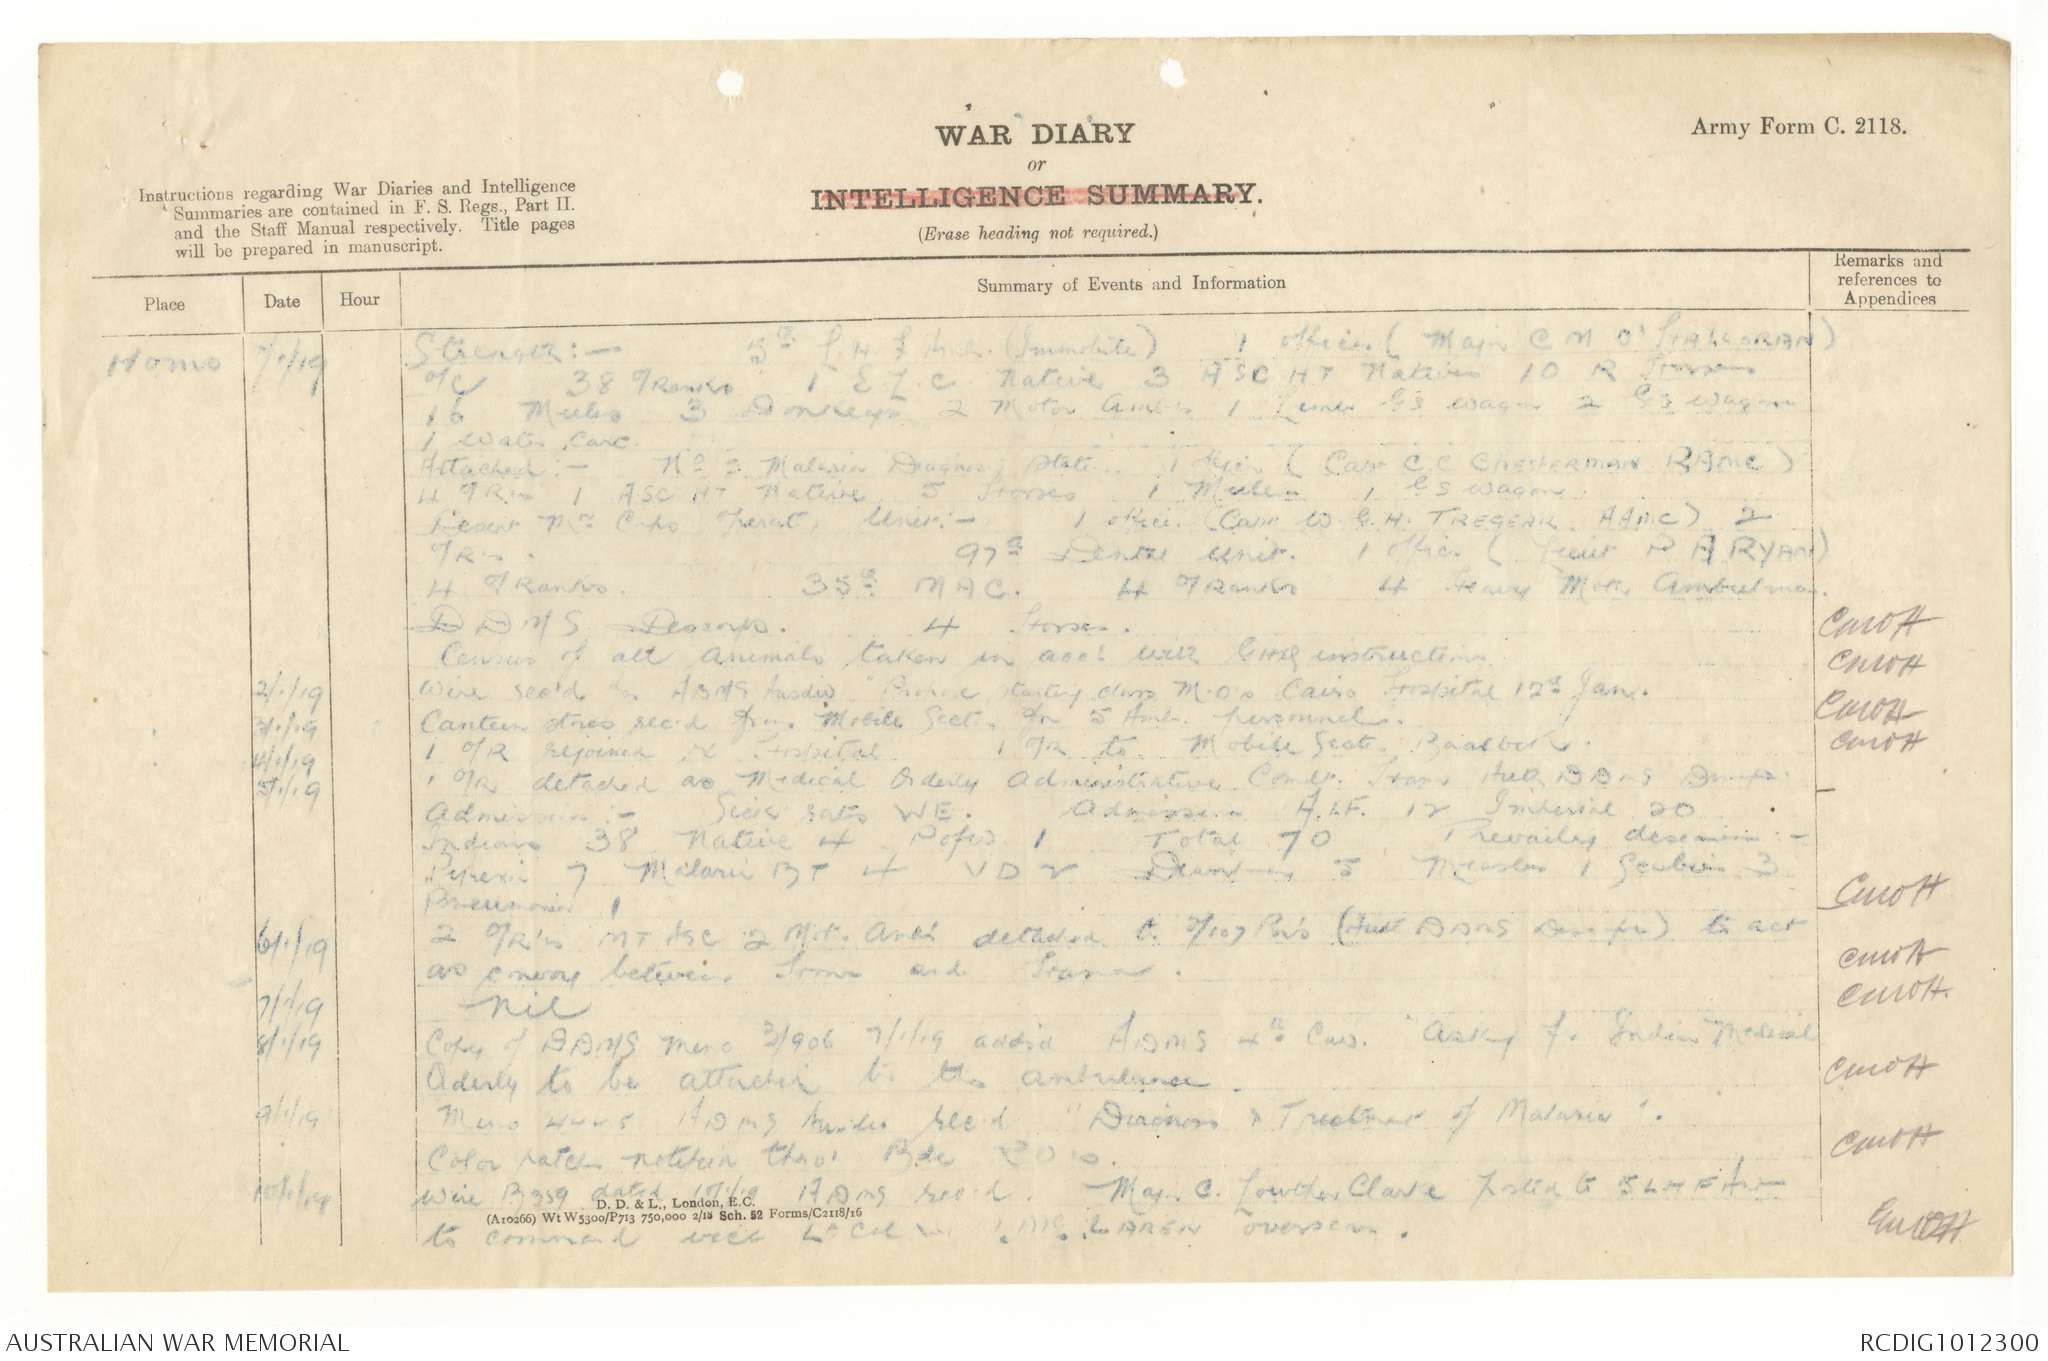 WAR DIARY
or
INTELLIGENCE SUMMARY.
(Erase heading not required.)
Army Form C. 2118.
Instructions regarding War Diaries and Intelligence
Summaries are contained in F. S. Regs., Part II.
and the Staff Manual respectively. Title pages
will be prepared in manuscript.
Place
Date
Hour
Summary of Events and Information
Remarks and
references to
Appendices
Homs 1/1/19 Strength:- 5th L.H.F. Amb. (Immobile) 1 officer (Major C M O'HALLORAN)
O/C 38 O/Ranks 1 E.L.C. Native 3 ASC HT Natives 10 R Horses
16 Mules 3 Donkeys 2 Motor Ambs 1 Limber GS wagon 2 GS wagons
1 Water Cart.
Attached:- No 2 Malaria Diagnosis Stat. 1 Officer (Capt C.C. CHESTERMAN RAMC)
4 O/Rs 1 ASC HT Native 5 Horses 1 Mule 1 GS wagon.
Desert Mtd Corps Operat. Unit:- 1 officer (Capt W G.H. TREGEAR AAMC) 2
O/Rs. 97th Dental Unit. 1 Officer (Lieut P A RYAN)
4 O/Ranks. 35th MAC. 4 O/Ranks 4 Heavy Motor Ambulances.
DDMS Descorps. 4 Horses. CMOH
Census of all animals taken in acc' with GHQ instructions CMOH
2/1/19 Wire rec'd fr ADMS Ausdiv "Propose starting class M.O's Cairo Hospital 12th Jan. CMOH
3/1/19 Canteen stores rec'd from Mobile Sect. for 5 Amb. personnel. CMOH
4/1/19 1 O/R rejoined ex Hospital 1 O/R to Mobile Sect. Baalbek.
5/1/19 1 O/R detached as Medical Orderly Administrative Comdt. Hama Auth DDMS
Admissions:- Sick rate WE. Admissions A.I.F. 12 Imperial 20
Indians 38 Native 4 PofW 1 Total 70 Prevailing diseases:-
Pyrexia 7 Malaria BT 4 VD 2 5 Measles 1 Scabies 3
Pneumonia 1 CMOH
6/1/19 2 O/R's MT ASC 2 Mot. Amb's detached (Auth DDMS Descorps) to act
as convoy between Homs and Hama. CMOH
7/1/19 Nil CMOH.
8/1/19 Copy of DDMS Memo 3/906 7/1/19 add'd ADMS 4th Cav. Asking for Indian Medical
Orderly to be attached to this ambulance. CMOH
9/1/19 Memo 4425 ADMS Ausdiv rec'd "Diagnosis & Treatment of Malaria".
Color patch notified thro' Bde CMOH
10/1/19 Wire B939 dated 10/1/19 ADMS rec'd. Major C. Lowther Clarke posted to 5 LHF Amb
to command vice Lt Col McLAREN overseas. CMOH
D. D. & L., London, E.C.
(A10266) Wt W5300/P713 750,000 2/18 Sch. 52 Forms/C2118/16
AUSTRALIAN WAR MEMORIAL
RCDIG1012300